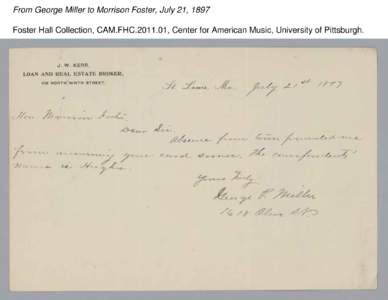 From George Miller to Morrison Foster, July 21, 1897
Foster Hall Collection, CAM.FHC.2011.01, Center for American Music, University of Pittsburgh.
J. W. KERR,
LOAN AND REAL ESTATE BROKER,
NORTH NINTH STREET.
St Louis Mo. July 21st 1897
Hon Morrison Foster
Dear Sir
absence from town prevented me
from answering your card sooner. The correspondents
name is Hughes.
Yours Truly
George P. Miller
Olive St